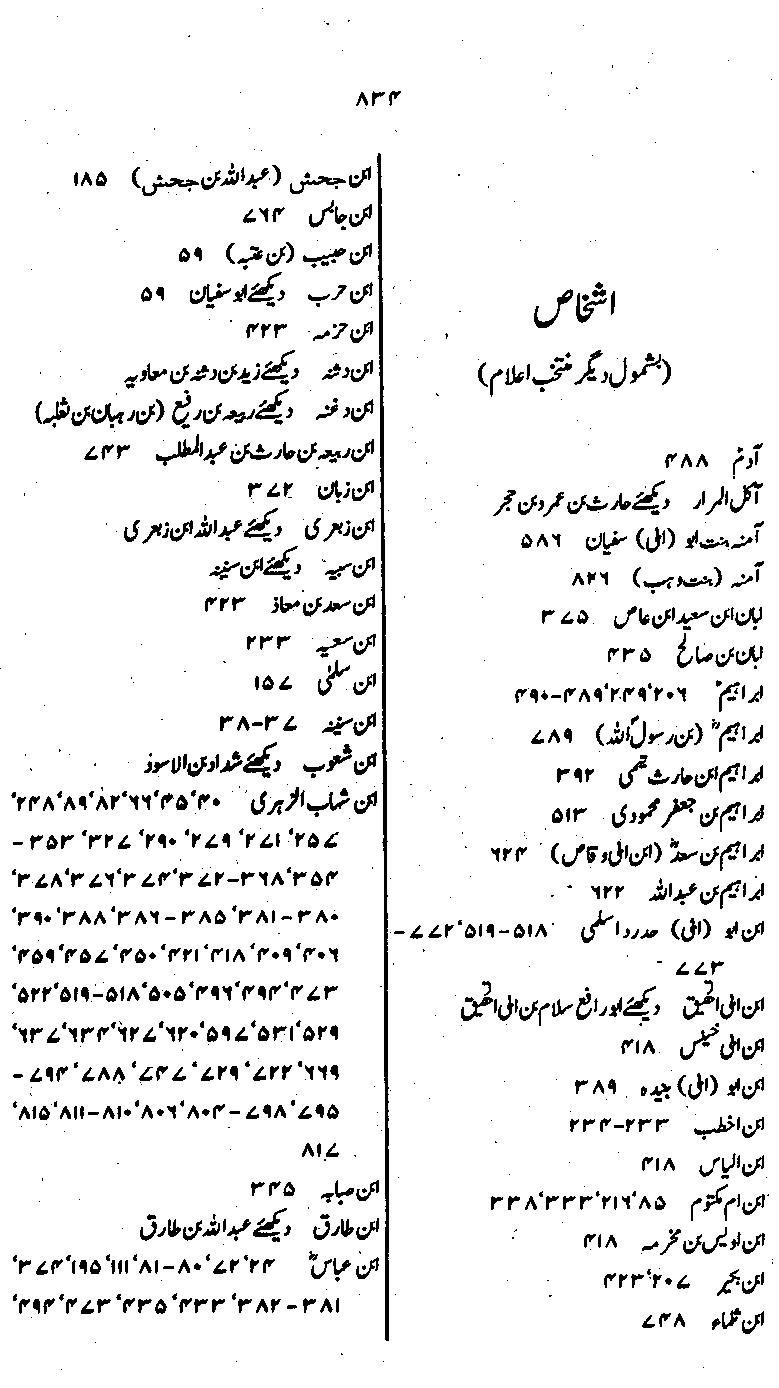 ۸۳۴
اشخاص
(بشمول دیگر منتخب اعلام)
آدمؑ ۴۸۸
آکل المرار دیکھئے حارث بن عمرو بن حجر
آمنہ بنت ابو (ابی) سفیان ۵۸۶
آمنہ (بنت وہب) ۸۲۶
ابان ابن سعید ابن عاص ۳۷۵
ابان بن صالح ۴۳۵
ابراہیمؑ ۲۰۶‘۲۴۹‘۴۸۹-۴۹۰
ابراہیمؓ (بن رسولؐ اللہ) ۷۸۹
ابراہیم ابن حارث تیمی ۳۹۲
ابراہیم بن جعفر محمودی ۵۱۳
ابراہیم بن سعدؓ (ابن ابی وقاص) ۶۲۴
ابراہیم بن عبداللہ ۶۲۲
ابن ابو (ابی) حدرد اسلمی ۵۱۸-۵۱۹‘۷۷۲-
۷۷۳
ابن ابی الحقیق دیکھئے ابو رافع سلام بن ابی الحقیق
ابن ابی خنیس ۴۱۸
ابن ابو (ابی) جیدہ ۳۸۹
ابن اخطب ۲۳۳-۲۳۴
ابن الیاس ۴۱۸
ابن ام مکتوم ۸۵‘۲۱۶‘۳۳۳‘۳۳۸
ابن اویس بن مخرمہ ۴۱۸
ابن بجیر ۲۰۷‘۴۲۳
ابن ثلماء ۷۴۸
ابن جحش (عبداللہ بن جحش) ۱۸۵
ابن حابس ۷۶۴
ابن حبیب (بن عتبہ) ۵۹
ابن حرب دیکھئے ابو سفیان ۵۹
ابن حزمہ ۴۲۳
ابن دثنہ دیکھئے زید بن دثنہ بن معاویہ
ابن دغنہ دیکھئے ربیعہ بن رفیع (بن رہبان بن ثعلبہ)
ابن ربیعہ بن حارث بن عبدالمطلب ۷۴۳
ابن زبان ۳۷۲
ابن زبعری دیکھئے عبداللہ ابن زبعری
ابن سبیہ دیکھئے ابن سنینہ
ابن سعد بن معاذ ۴۲۳
ابن سعیہ ۲۳۳
ابن سلمٰی ۱۵۷
ابن سنینہ ۳۷-۳۸
ابن شعوب دیکھئے شداد بن الاسود
ابن شہاب الزہری ۴۰‘۴۵‘۶۶‘۸۲‘۸۹‘۲۴۸‘
۲۵۷‘۲۷۱‘۲۷۹‘۲۹۰‘۳۲۷‘۳۵۳-
۳۵۴‘۳۶۸-۳۷۲‘۳۷۴‘۳۷۶‘۳۷۸‘
۳۸۰-۳۸۱‘۳۸۵-۳۸۶‘۳۸۸‘۳۹۰‘
۴۰۶‘۴۰۹‘۴۱۸‘۴۲۱‘۴۵۰‘۴۵۷‘۴۵۹‘
۴۷۳‘۴۹۴‘۴۹۶‘۵۰۵‘۵۱۸-۵۱۹‘۵۲۲‘
۵۲۹‘۵۳۱‘۵۹۷‘۶۲۰‘۶۲۷‘۶۳۴‘۶۳۷‘
۶۶۹‘۷۲۲‘۷۲۹‘۷۴۷‘۷۸۸‘۷۹۴-
۷۹۵‘۷۹۸-۸۰۴‘۸۰۶‘۸۱۰-۸۱۱‘۸۱۵‘
۸۱۷
ابن صبابہ ۳۴۵
ابن طارق دیکھئے عبداللہ بن طارق
ابن عباسؓ ۲۴‘۷۲‘۸۰-۸۱‘۱۱۱‘۱۹۵‘۳۷۴‘
۳۸۱-۳۸۲‘۴۳۳‘۴۳۵‘۴۷۳‘۴۹۴‘